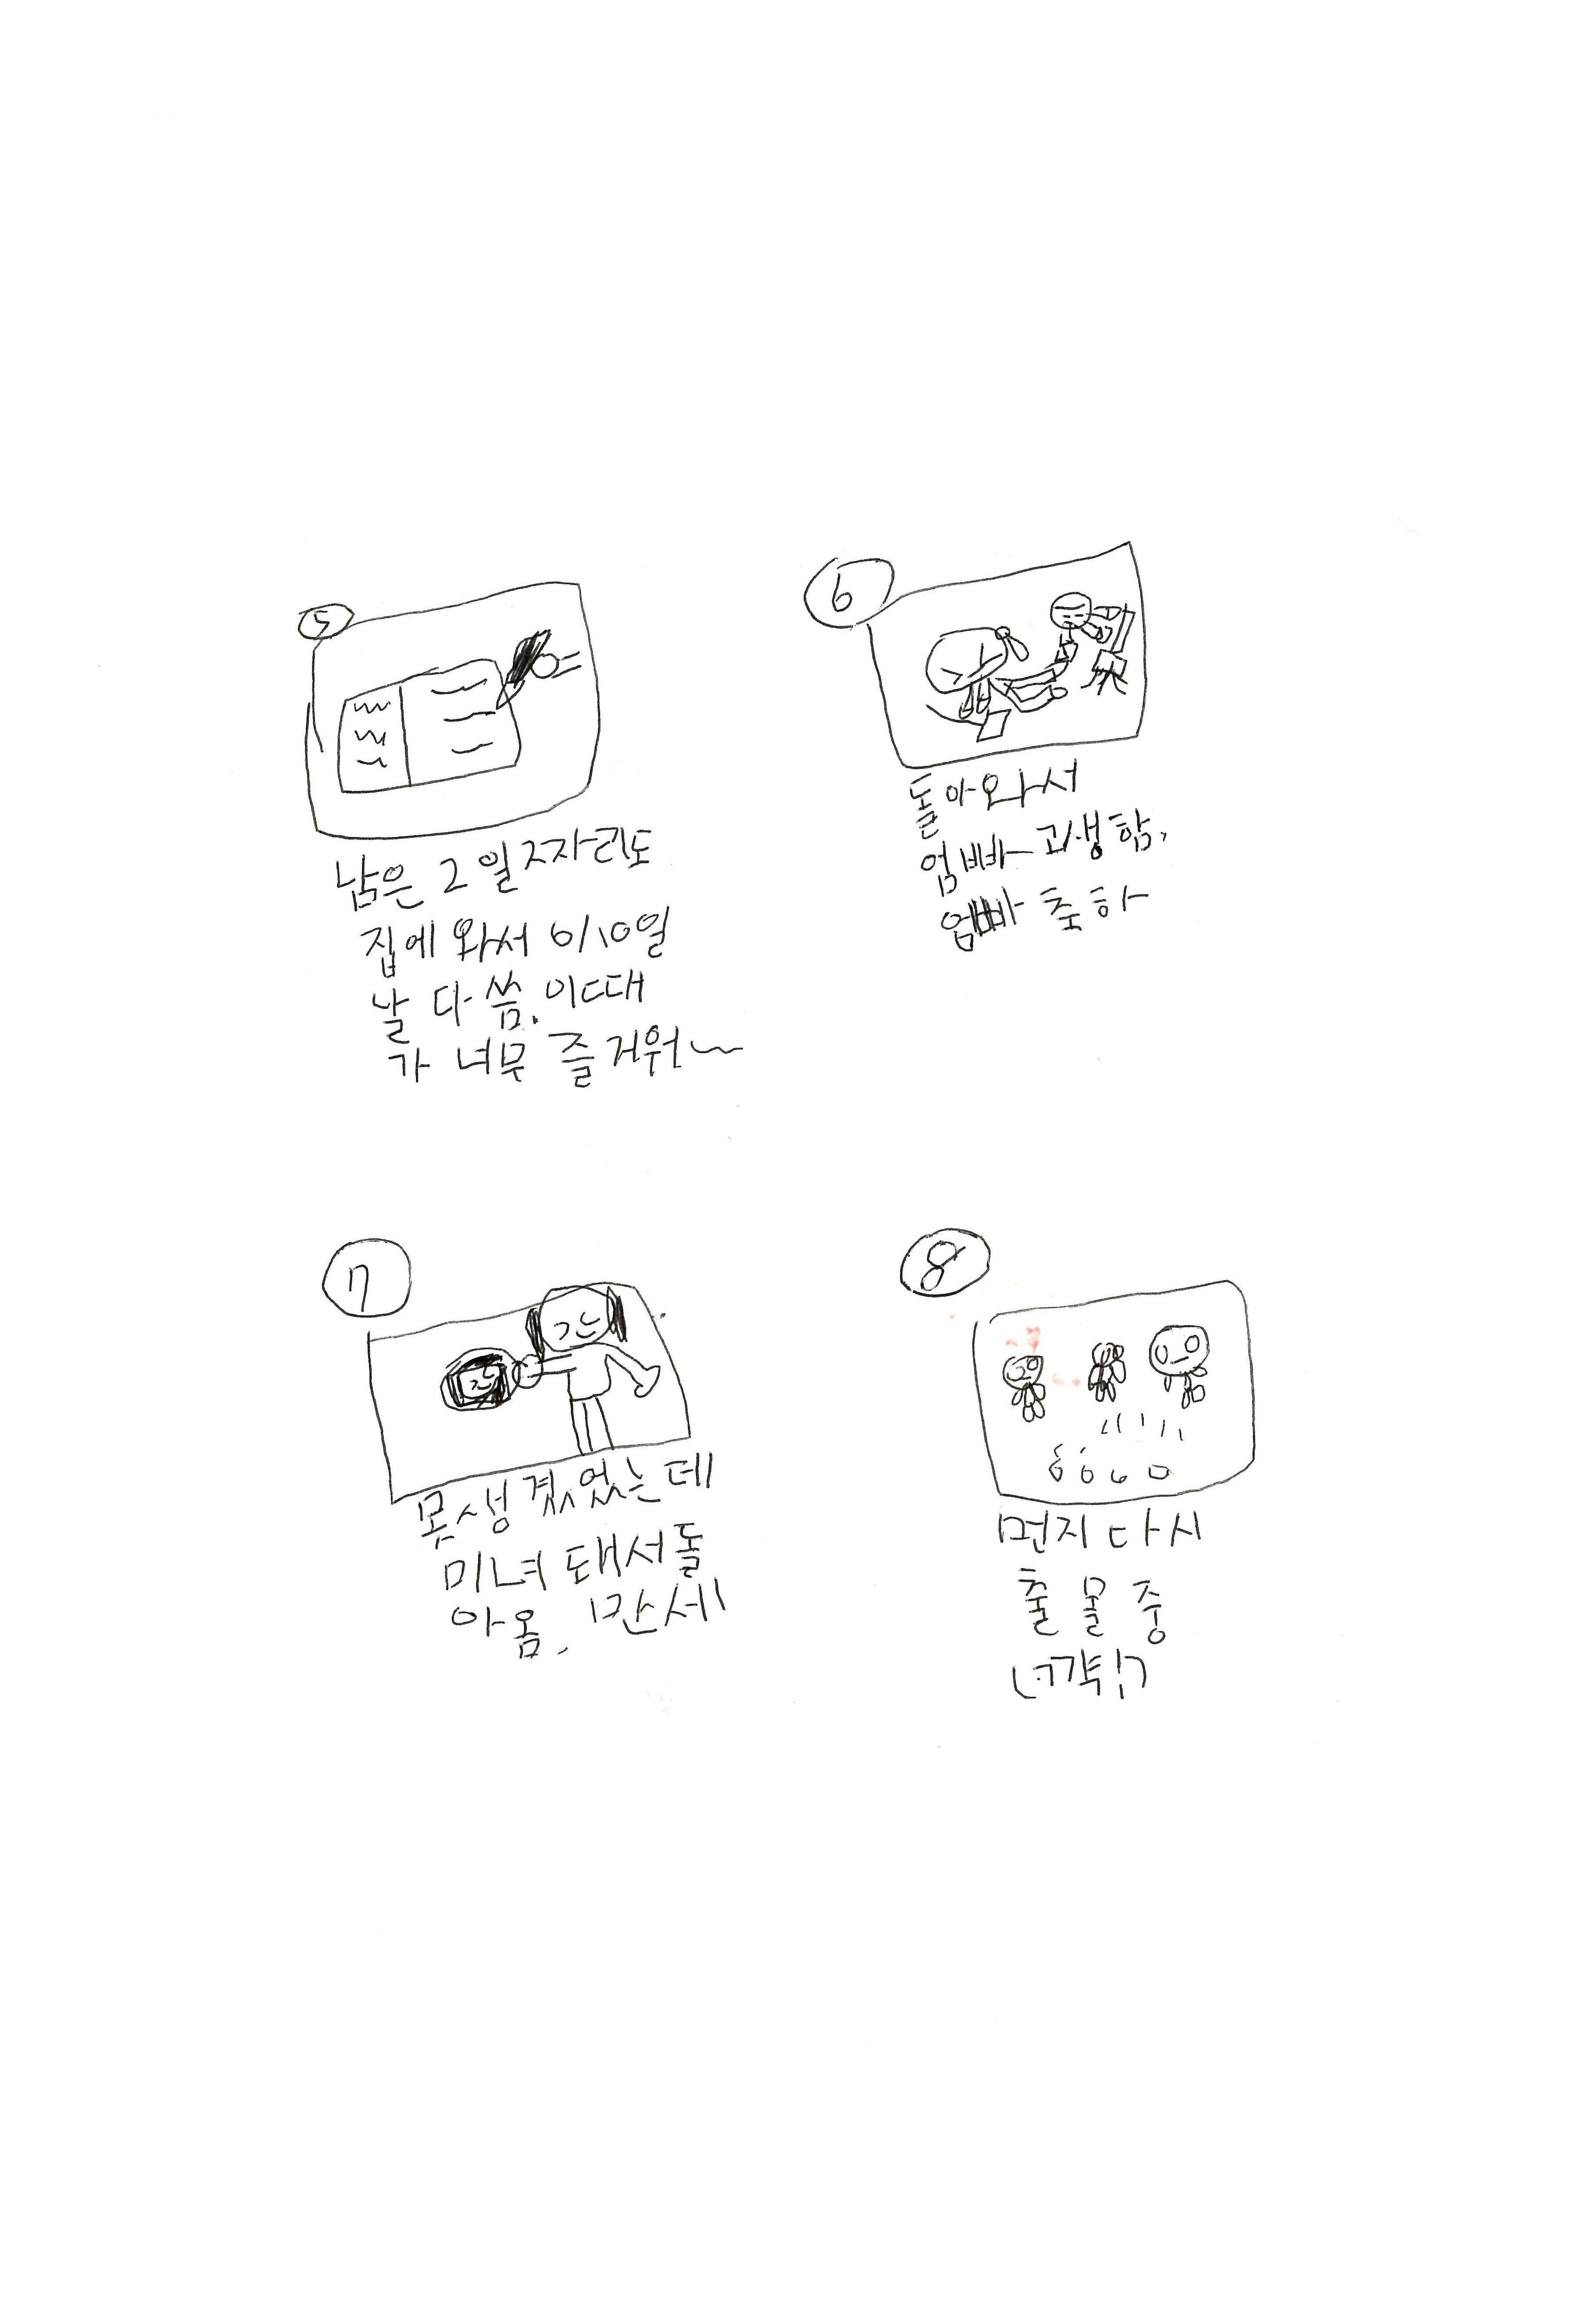 5
남은 2일 2자리도
집에 와서 6/10일
날 다 씀. 이때
가 너무 즐거워~
6
돌아와서
엄빠 고생함.
엄빠 축하
7
못생겼었는데
미녀 돼서 돌
아옴. 만세
8
먼지 다시
출몰 중